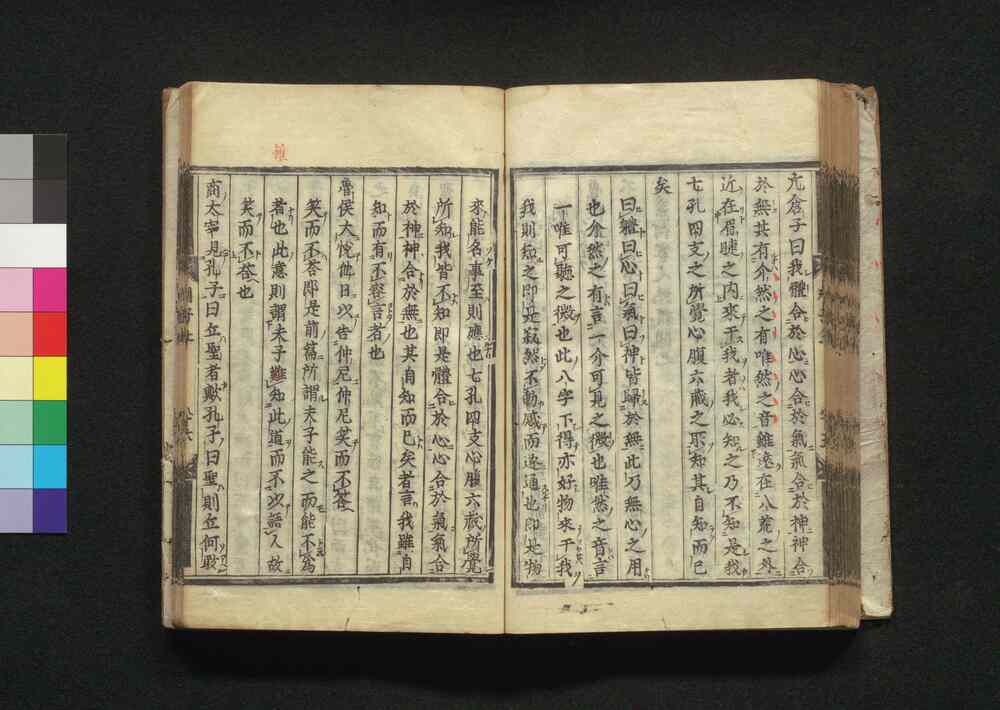 亢倉子曰我體合於心心合於氣氣合於神神合
於無其有介然之有唯然之音雖遠在八荒之外
近在眉睫之內來干我者我必知之乃不知是我
七孔四支之所覺心腹六藏之所知其自知而已
矣
曰體曰心曰氣曰神皆歸於無此乃無心之用
也介然之有言一介可見之微也唯然之音言
一唯可聽之微也此八字下得亦好物來干我
我則知之即是寂然不動感而遂通也即是物
來能名事至則應也七孔四支心腹六藏所覺
所知我皆不知即是體合於心心合於氣氣合
於神神合於無也其自知而已矣者言我雖自
知而有不容言者也
魯侯大悅他日以告仲尼仲尼笑而不答
笑而不答即是前篇所謂夫子能之而能不為
者也此意則謂夫子雖知此道而不以語人故
笑而不答也
商太宰見孔子曰丘聖者歟孔子曰聖則丘何敢
雖